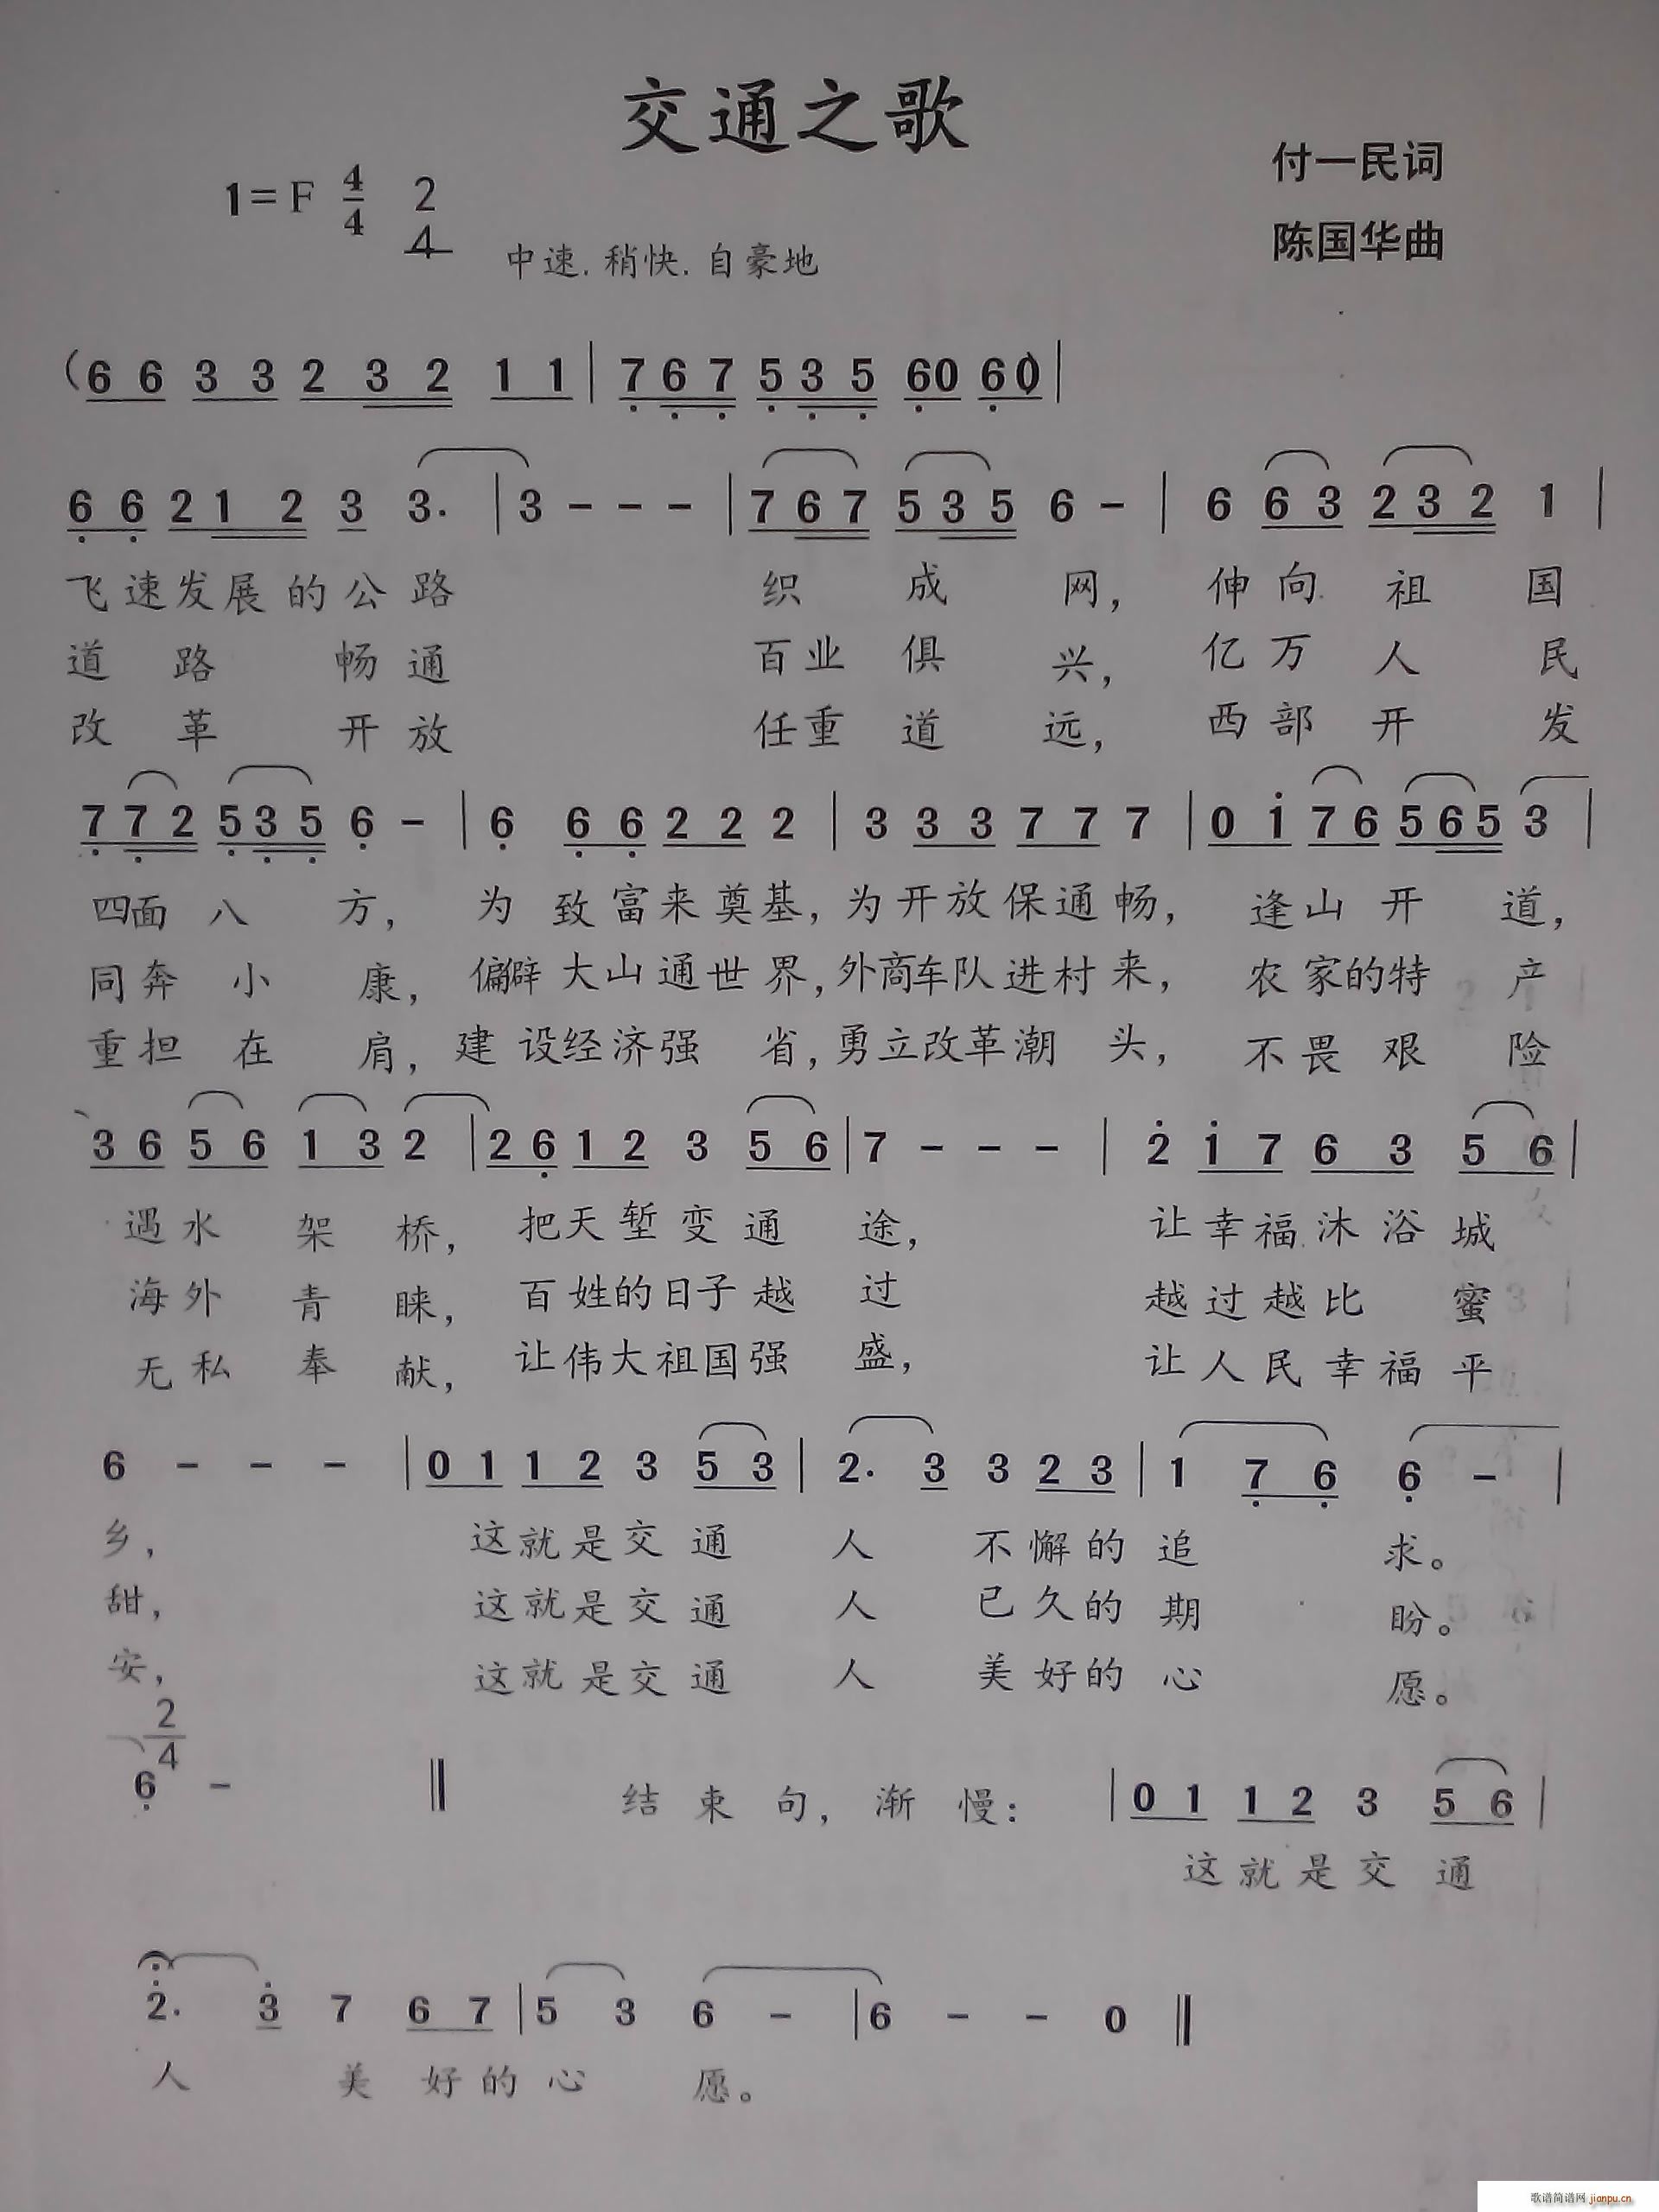 交通之歌
付一民词
1=F 4/4 2/4
陈国华曲
中速.稍快.自豪地
(66 33 232 11|767 535 60 60)|
66 212 3 3.|3 - - -|767 535 6 -|6 63 232 1|
飞速发展的公路 织成网，伸向祖国
道路畅通 百业俱兴，亿万人民
改革开放 任重道远，西部开发
772 535 6 -|6 66 222 2|3 33 77 7|0i 76 565 3|
四面八方，为致富来奠基，为开放保通畅，逢山开道，
同奔小康，偏僻大山通世界，外商车队进村来，农家的特产
重担在肩，建设经济强省，勇立改革潮头，不畏艰险
36 56 13 2|26 12 3 56|7 - - -|2 i7 63 56|
遇水架桥，把天堑变通途，让幸福沐浴城
海外青睐，百姓的日子越过 越过越比蜜
无私奉献，让伟大祖国强盛，让人民幸福平
6 - - -|01 12 3 53|2. 3 3 23|1 76 6 -|
乡，这就是交通人不懈的追求。
甜，这就是交通人已久的期盼。
安，这就是交通人美好的心愿。
2/4
6 - ‖ 结束句，渐慢：|01 12 3 56|
这就是交通
2. 3 7 67|5 3 6 -|6 - - 0‖
人 美好的心愿。
歌谱简谱网 jianpu.cn